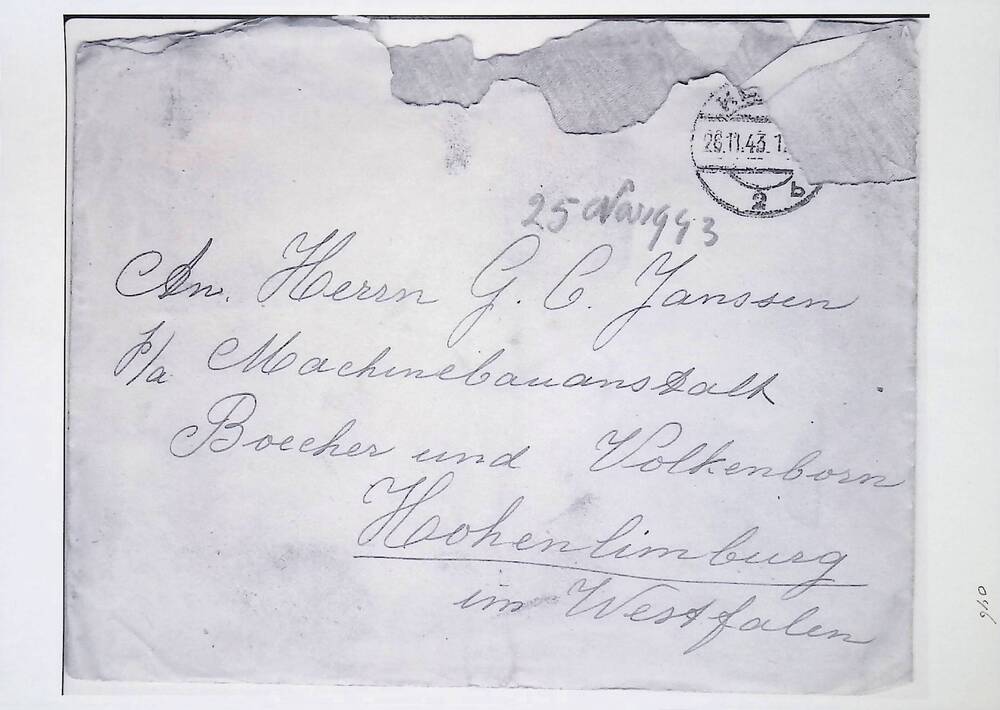 26.11.43. 1
2 b
25 Nov 1943
An. Herrn G. C. Janssen
p/a Machinebauanstalt
Boecher und Volkenborn
Hohenlimburg
im Westfalen